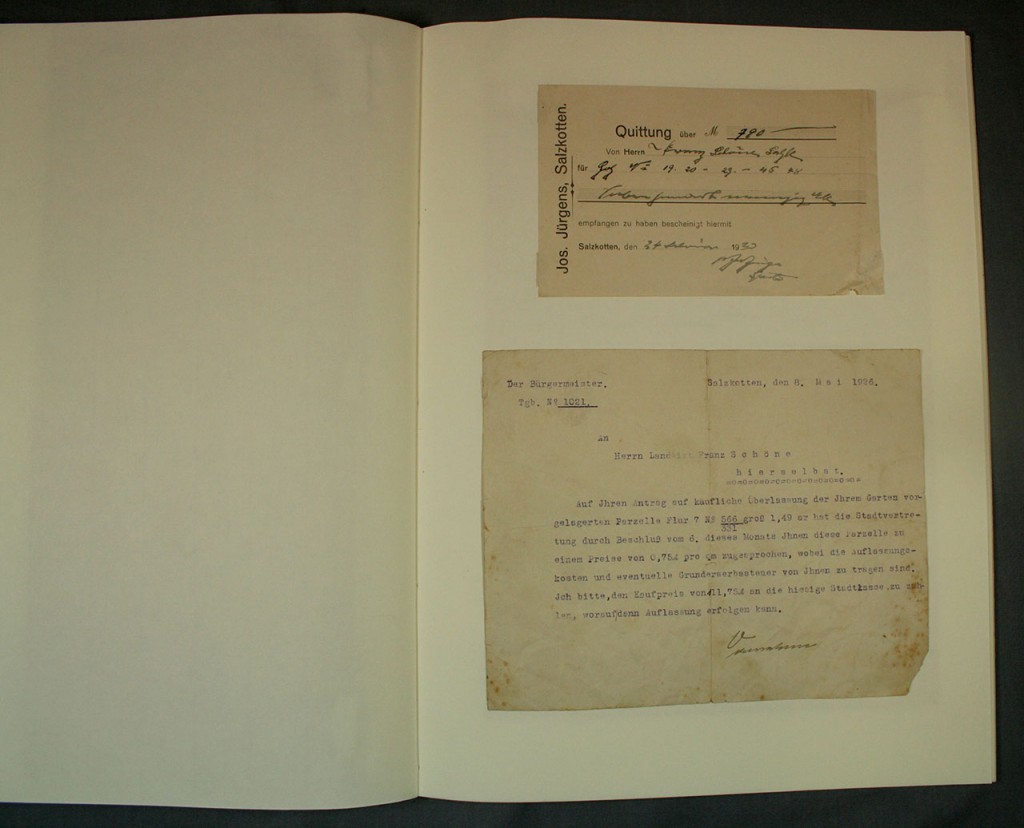 Jos. Jürgens, Salzkotten.
Quittung über M 780
Von Herrn Franz
für
empfangen zu haben bescheinigt hiermit
Salzkotten, den 1930
Der Bürgermeister. Salzkotten, den 8. M a i 1926.
Tgb. No 1021.
An
Herrn Franz S c h ö n e
h i e r s e l b s t.
Auf Jhren Antrag auf käufliche Überlassung der Jhrem Garten vor-
gelagerten Parzelle Flur 7 No 566/331 groß 1,49 ar hat die Stadtvertre-
tung durch Beschluß vom 6. dieses Monats Jhnen diese Parzelle zu
einem Preise von 0,75M pro qm zugesprochen, wobei die Auflassungs-
kosten und eventuelle Grunderwerbssteuer von Jhnen zu tragen sind.
Jch bitte, den Kaufpreis von 111,75M an die hiesige Stadtkasse zu zah-
len, worauf dann Auflassung erfolgen kann.